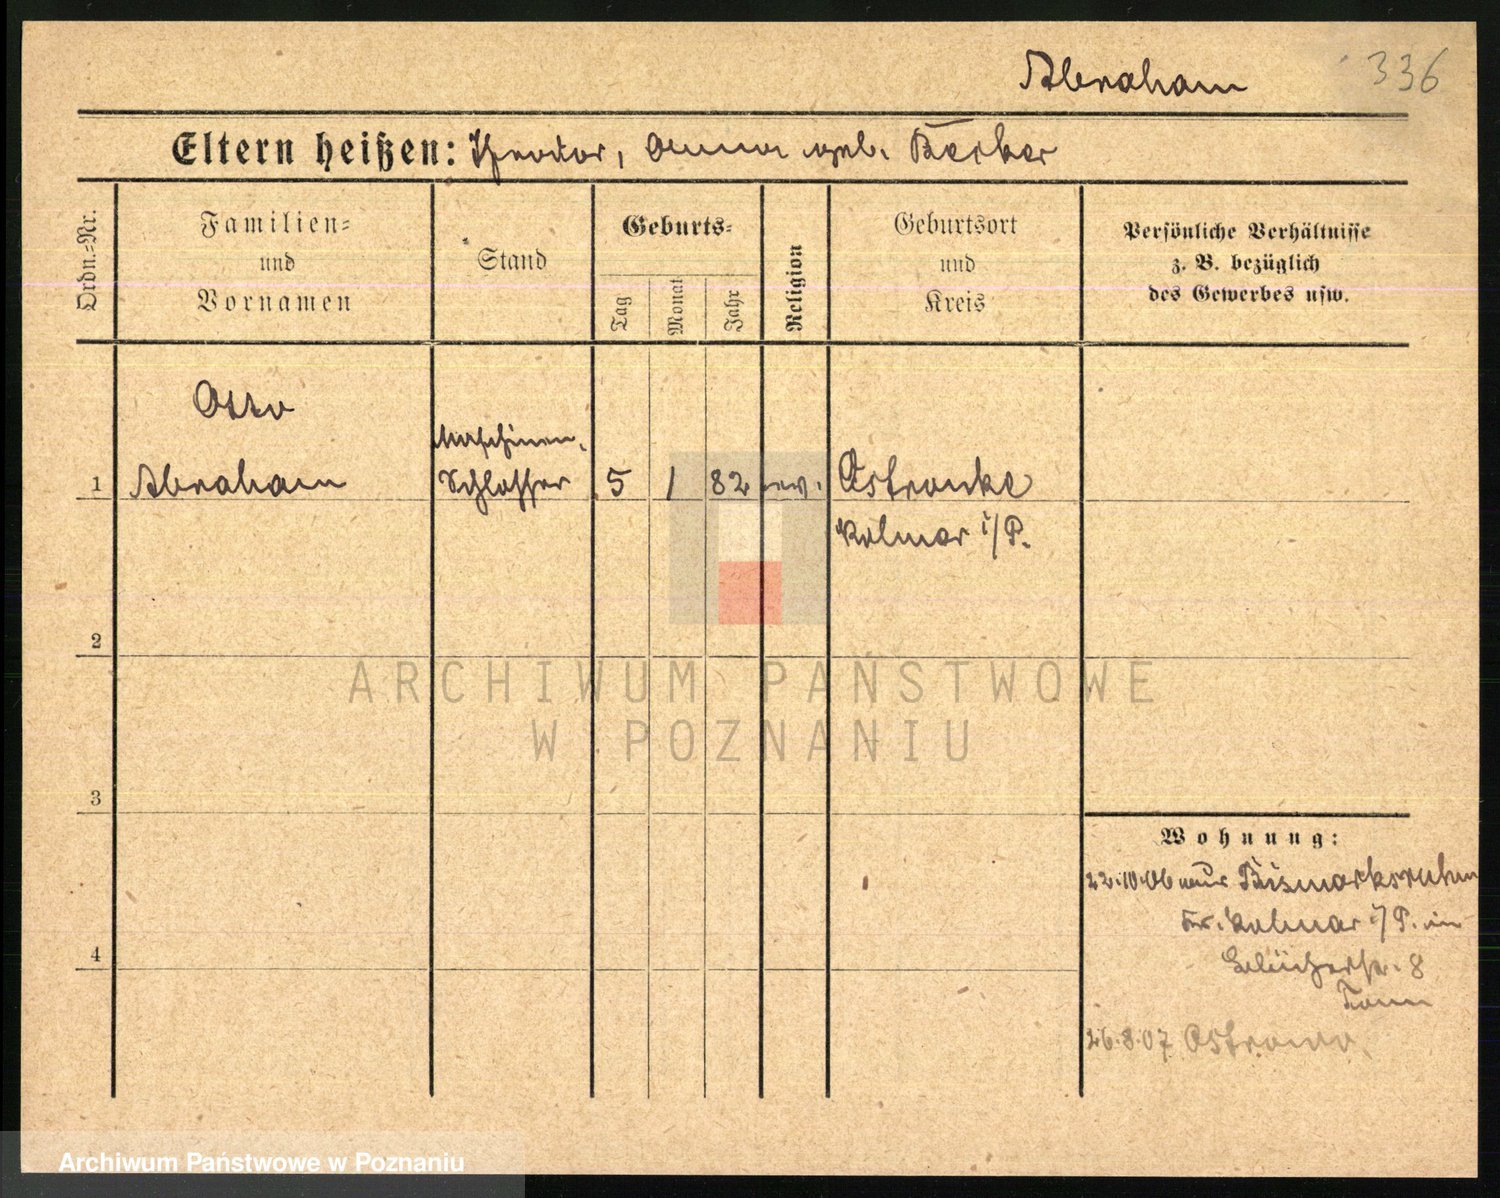 Abraham 336
Eltern heißen: Theodor, Anna geb. Berber
Ordn.-Nr.
Familien-
und
Vornamen
Stand
Geburts-
Tag
Monat
Jahr
Religion
Geburtsort
und
Kreis
Persönliche Verhältnisse
z. B. bezüglich
des Gewerbes usw.
Otto
Maschinen-
1 Abraham Schlosser 5 1 82 ev. Ostrowke
Kolmar i/P.
2
3
4
Wohnung:
22.10.06 aus Bismarksruhm
Kr. Kolmar i/P. in
8
26.8.07
ARCHIWUM PAŃSTWOWE
W POZNANIU
Archiwum Państwowe w Poznaniu